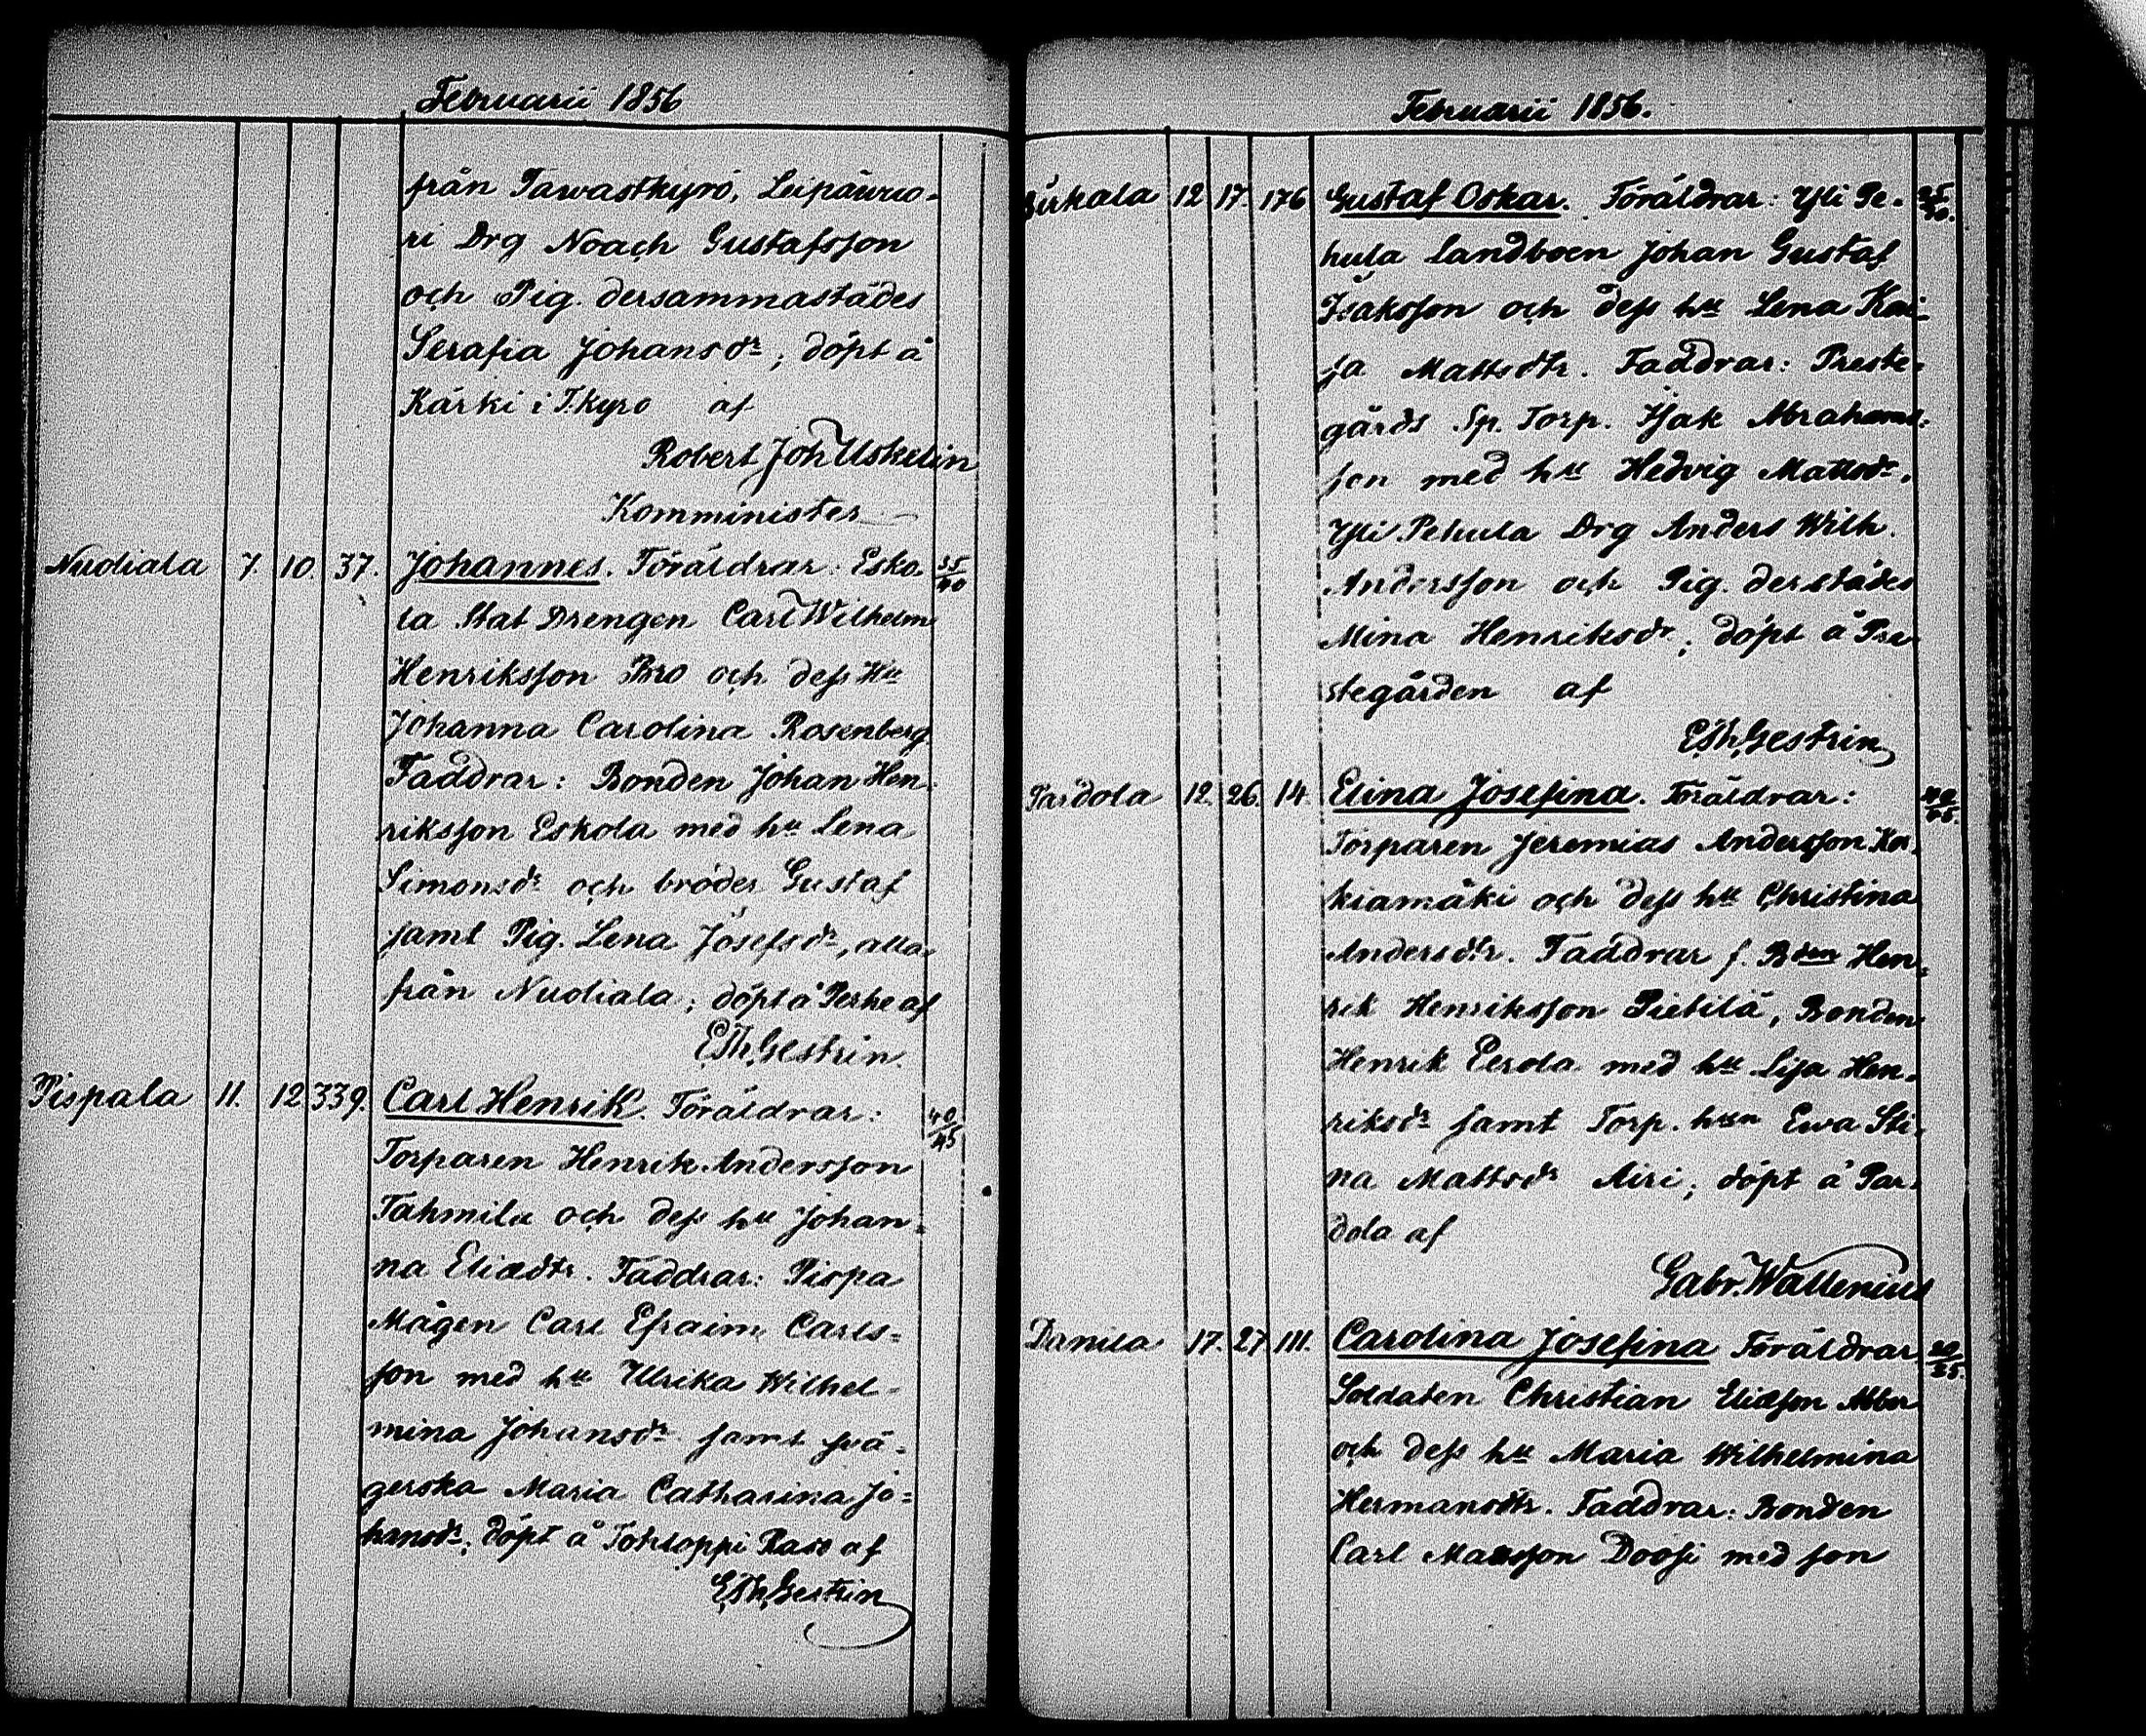 Februarii 1856
från Tawastkyrö, Leipäwuo-
ri Drg Noach Gustafsson
och Pig. dersammastädes
Serafia Johansdr; döpt å
Kärki i T.kyro af
Robert Joh Uskelin
Komminister
Nuoliala 7. 10. 37. Johannes. Föräldrar: Esko 35/40
la Stat Drengen Carl Wilhelm
Henriksson Bro och dess Hu
Johanna Carolina Rosenberg
Faddrar: Bonden Johan Hen-
riksson Eskola med hu Lena
Simonsdr och broder Gustaf
samt Pig. Lena Josefsdr, alla
från Nuoliala; döpt å Perhe af
E.Th.Gestrin.
Pispala 11. 12 339. Carl Henrik. Föräldrar: 40/45
Torparen Henrik Andersson
Tahmila och dess hu Johan-
na Eliædtr. Faddrar: Pispa
Mågen Carl Efraim Carls=
son med hu Ulrika Wilhel-
mina Johansdr samt svä-
gerska Maria Catharina Jo=
hansdr; döpt å Tohloppi Raso af
E.Th.Gestrin
Februarii 1856.
Birkala 12 17. 176 Gustaf Oskar. Föräldrar: Yli Pe-
hula Landboen Johan Gustaf
Isaksson och dess hu Lena Kai-
sa Mattsdtr. Faddrar: Preste-
gårds Sp. Torp. Isak Abrahams-
son med hu Hedvig Mattsdr,
Yli Pehula Drg Anders Wilh.
Andersson och Pig. derstädes
Mina Henriksdr; döpt å Pre
stegården af
E.Th.Gestrin
Pardola 12. 26. 14. Elina Josefina. Föräldrar: 40/45.
Torparen Jeremias Andersson Kor-
kiamäki och dess hu Christina
Andersdtr. Faddrar f. Bden Hen-
rik Henriksson Pietilä, Bonden
Henrik Eerola med hu Lisa Hen-
riksdr samt Torp. hun Ewa Sti-
na Mattsdr Airi; döpt å Par-
dola af
Gabr. Wallenius
Danila 17. 27 111. Carolina Josefina Föräldrar
Soldaten Christian Eliæson Abbor
och dess hu Maria Wilhelmina
Hermansdtr. Faddrar: Bonden
Carl Matsson Doosi med son